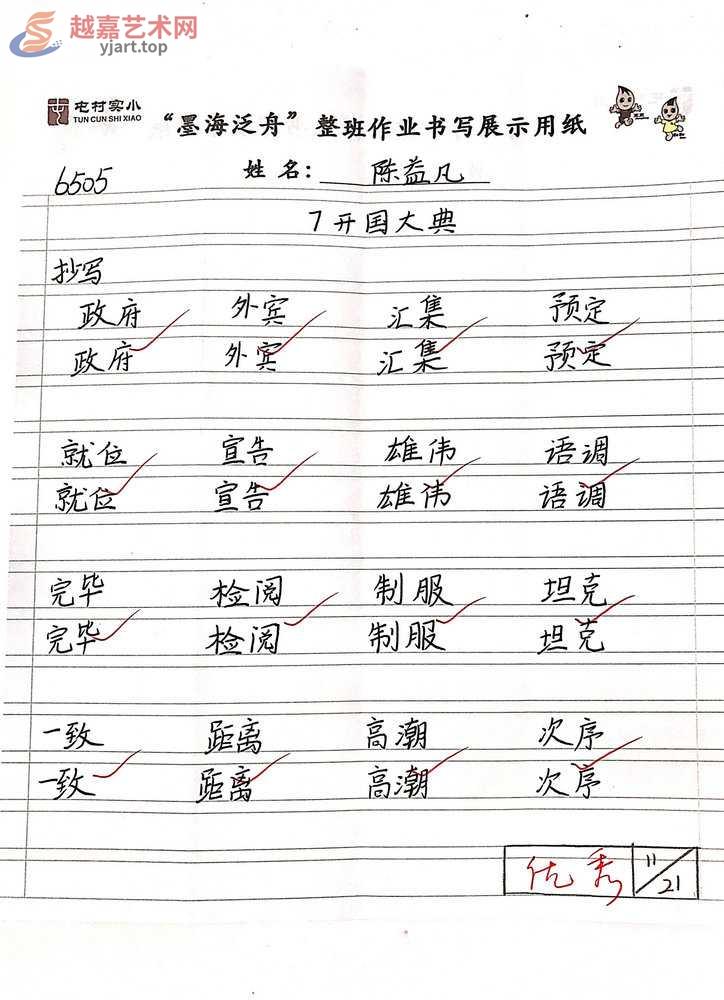 越嘉艺术网
yjart.top
屯村实小
TUN CUN SHI XIAO
“墨海泛舟”整班作业书写展示用纸
6505
姓名: 陈益凡
7 开国大典
抄写
政府 外宾 汇集 预定
政府 外宾 汇集 预定
就位 宣告 雄伟 语调
就位 宣告 雄伟 语调
完毕 检阅 制服 坦克
完毕 检阅 制服 坦克
一致 距离 高潮 次序
一致 距离 高潮 次序
优秀 11/21